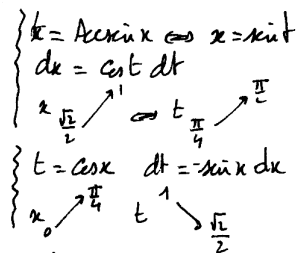 t = Arcsin x ⇔ x = sin t
dx = cos t dt
x √2/2 ↗ 1 ⇔ t π/4 ↗ π/2
t = cos x dt = -sin x dx
x 0 ↗ π/4 t 1 ↘ √2/2